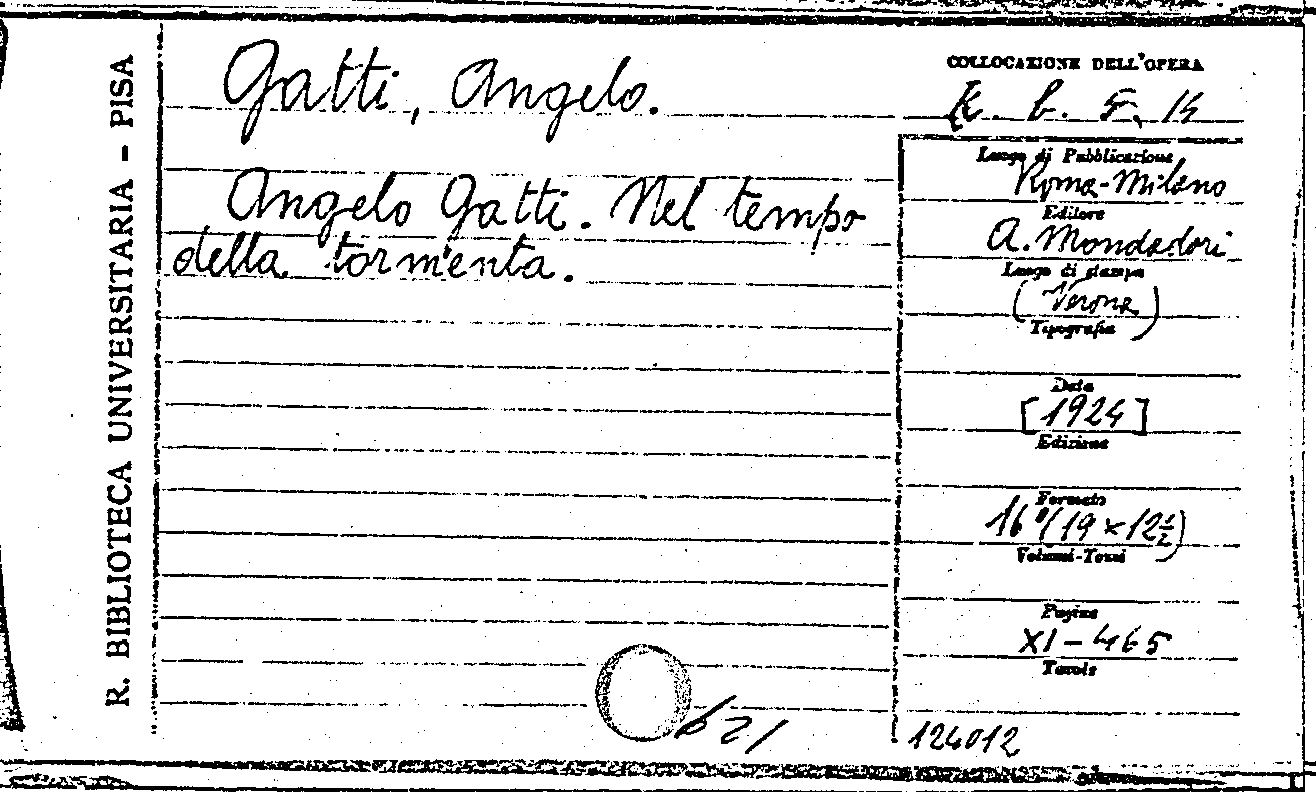 R. BIBLIOTECA UNIVERSITARIA - PISA
Gatti, Angelo.
Angelo Gatti. Nel tempo
della tormenta.
COLLOCAZIONE DELL'OPERA
K. b. 5, 14
Luogo di Pubblicazione
Roma-Milano
Editore
A. Mondadori
Luogo di stampa
(Verona)
Tipografia
Data
[1924]
Edizione
Formato
16°(19 × 12½)
Volumi-Tomi
Pagine
XI-465
Tavole
124012